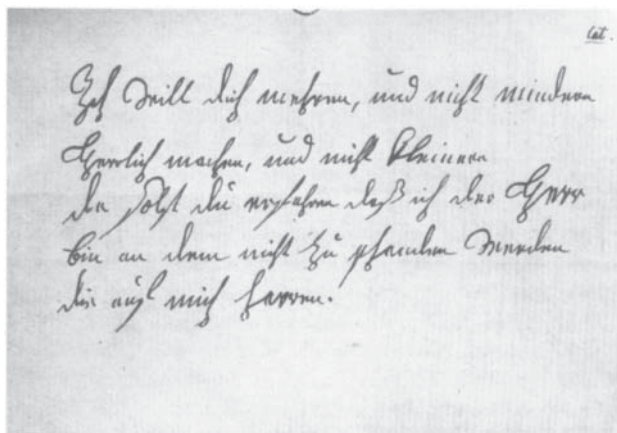 Cat.
Ich will dich mehren, und nicht mindern
Herrlich machen, und nicht kleinern
da solst du erfahren daß ich der Herr
bin an dem nicht zu schanden werden
die auf mich harren.